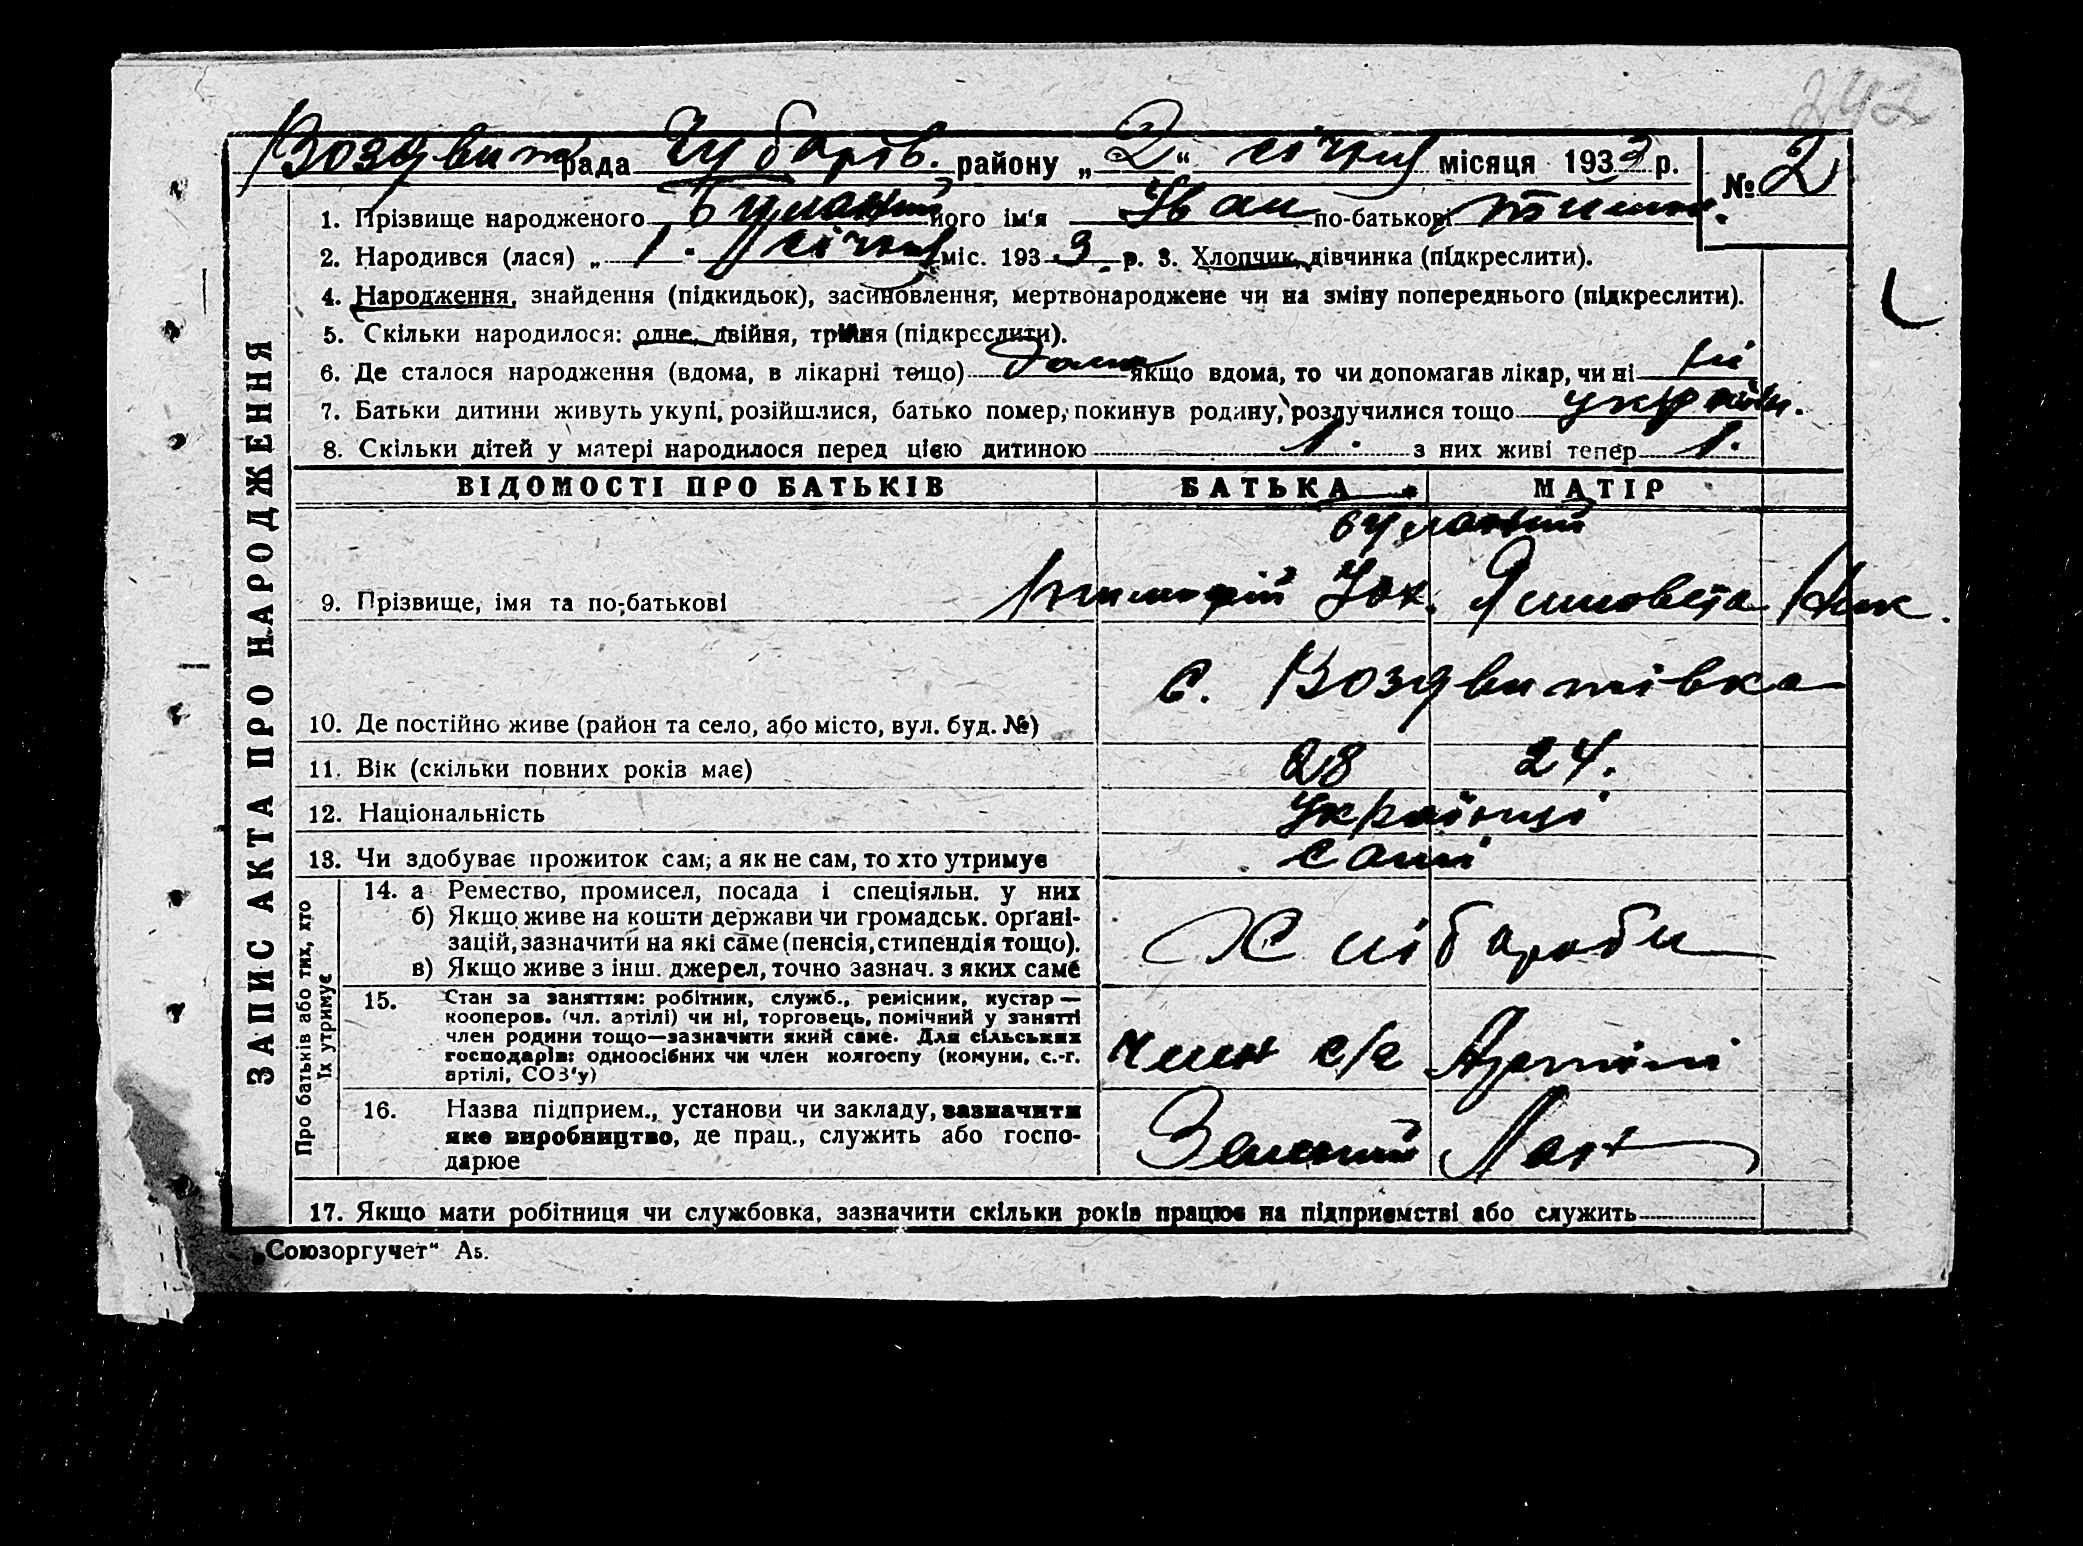 242
Воздвиж рада Чубарів. району „2“ січня місяця 1933 р. № 2
ЗАПИС АКТА ПРО НАРОДЖЕННЯ
1. Прізвище народженого Буланий його ім'я Іван по-батькові Тимоф.
2. Народився (лася) „1“ січня міс. 1933 р. 3. Хлопчик, дівчинка (підкреслити).
4. Народження, знайдення (підкидьок), засиновлення, мертвонароджене чи на зміну попереднього (підкреслити).
5. Скільки народилося: одне, двійня, трійня (підкреслити).
6. Де сталося народження (вдома, в лікарні тощо) дома якщо вдома, то чи допомагав лікар, чи ні ні
7. Батьки дитини живуть укупі, розійшлися, батько помер, покинув родину, розлучилися тощо
8. Скільки дітей у матері народилося перед цією дитиною 1. з них живі тепер 1.
ВІДОМОСТІ ПРО БАТЬКІВ БАТЬКА МАТІР
Буланий
9. Прізвище, імя та по-батькові Тимофій Як. Єлисовета Ник.
с. Воздвижівка
10. Де постійно живе (район та село, або місто, вул. буд. №)
11. Вік (скільки повних років має) 28 24.
12. Національність Українці
13. Чи здобуває прожиток сам, а як не сам, то хто утримує самі
Про батьків або тих, хто їх утримує
14. а Ремество, промисел, посада і спеціяльн. у них
б) Якщо живе на кошти держави чи громадськ. органі-
зацій, зазначити на які саме (пенсія, стипендія тощо).
в) Якщо живе з інш. джерел, точно зазнач. з яких саме
Хлібароби
15. Стан за заняттям: робітник, служб., ремісник, кустар —
кооперов. (чл. артілі) чи ні, торговець, помічний у занятті
член родини тощо—зазначити який саме. Для сільських
господарів: одноосібних чи член колгоспу (комуни, с.-г.
артілі, СОЗ'у)
член с/г Артілі
16. Назва підприєм., установи чи закладу, зазначити
яке виробництво, де прац., служить або госпо-
дарює
Зелений Лан
17. Якщо мати робітниця чи службовка, зазначити скільки років працює на підприємстві або служить
„Союзоргучет“ А5.